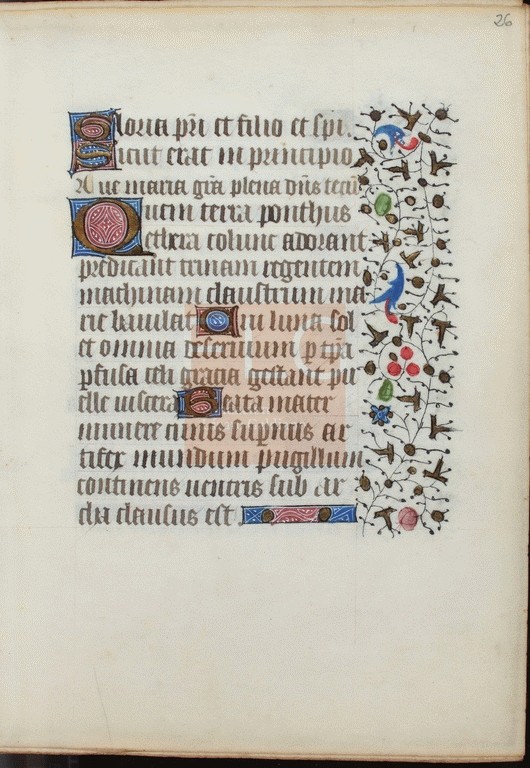 26
Gloria pri et filio et spi.
Sicut erat in principio
Aue maria gra plena dns tecu
Quem terra ponthus
ethera colunt adorant
predicant trinam regentem
machinam claustrum ma
rie baiulat Cui luna sol
et omnia deseruium p tpa
pfusa celi gracia gestant pu
elle uiscera Beata mater
munere cuius supnus ar
tifex mundum pugillum
continens uentris sub ar
cha clausus est